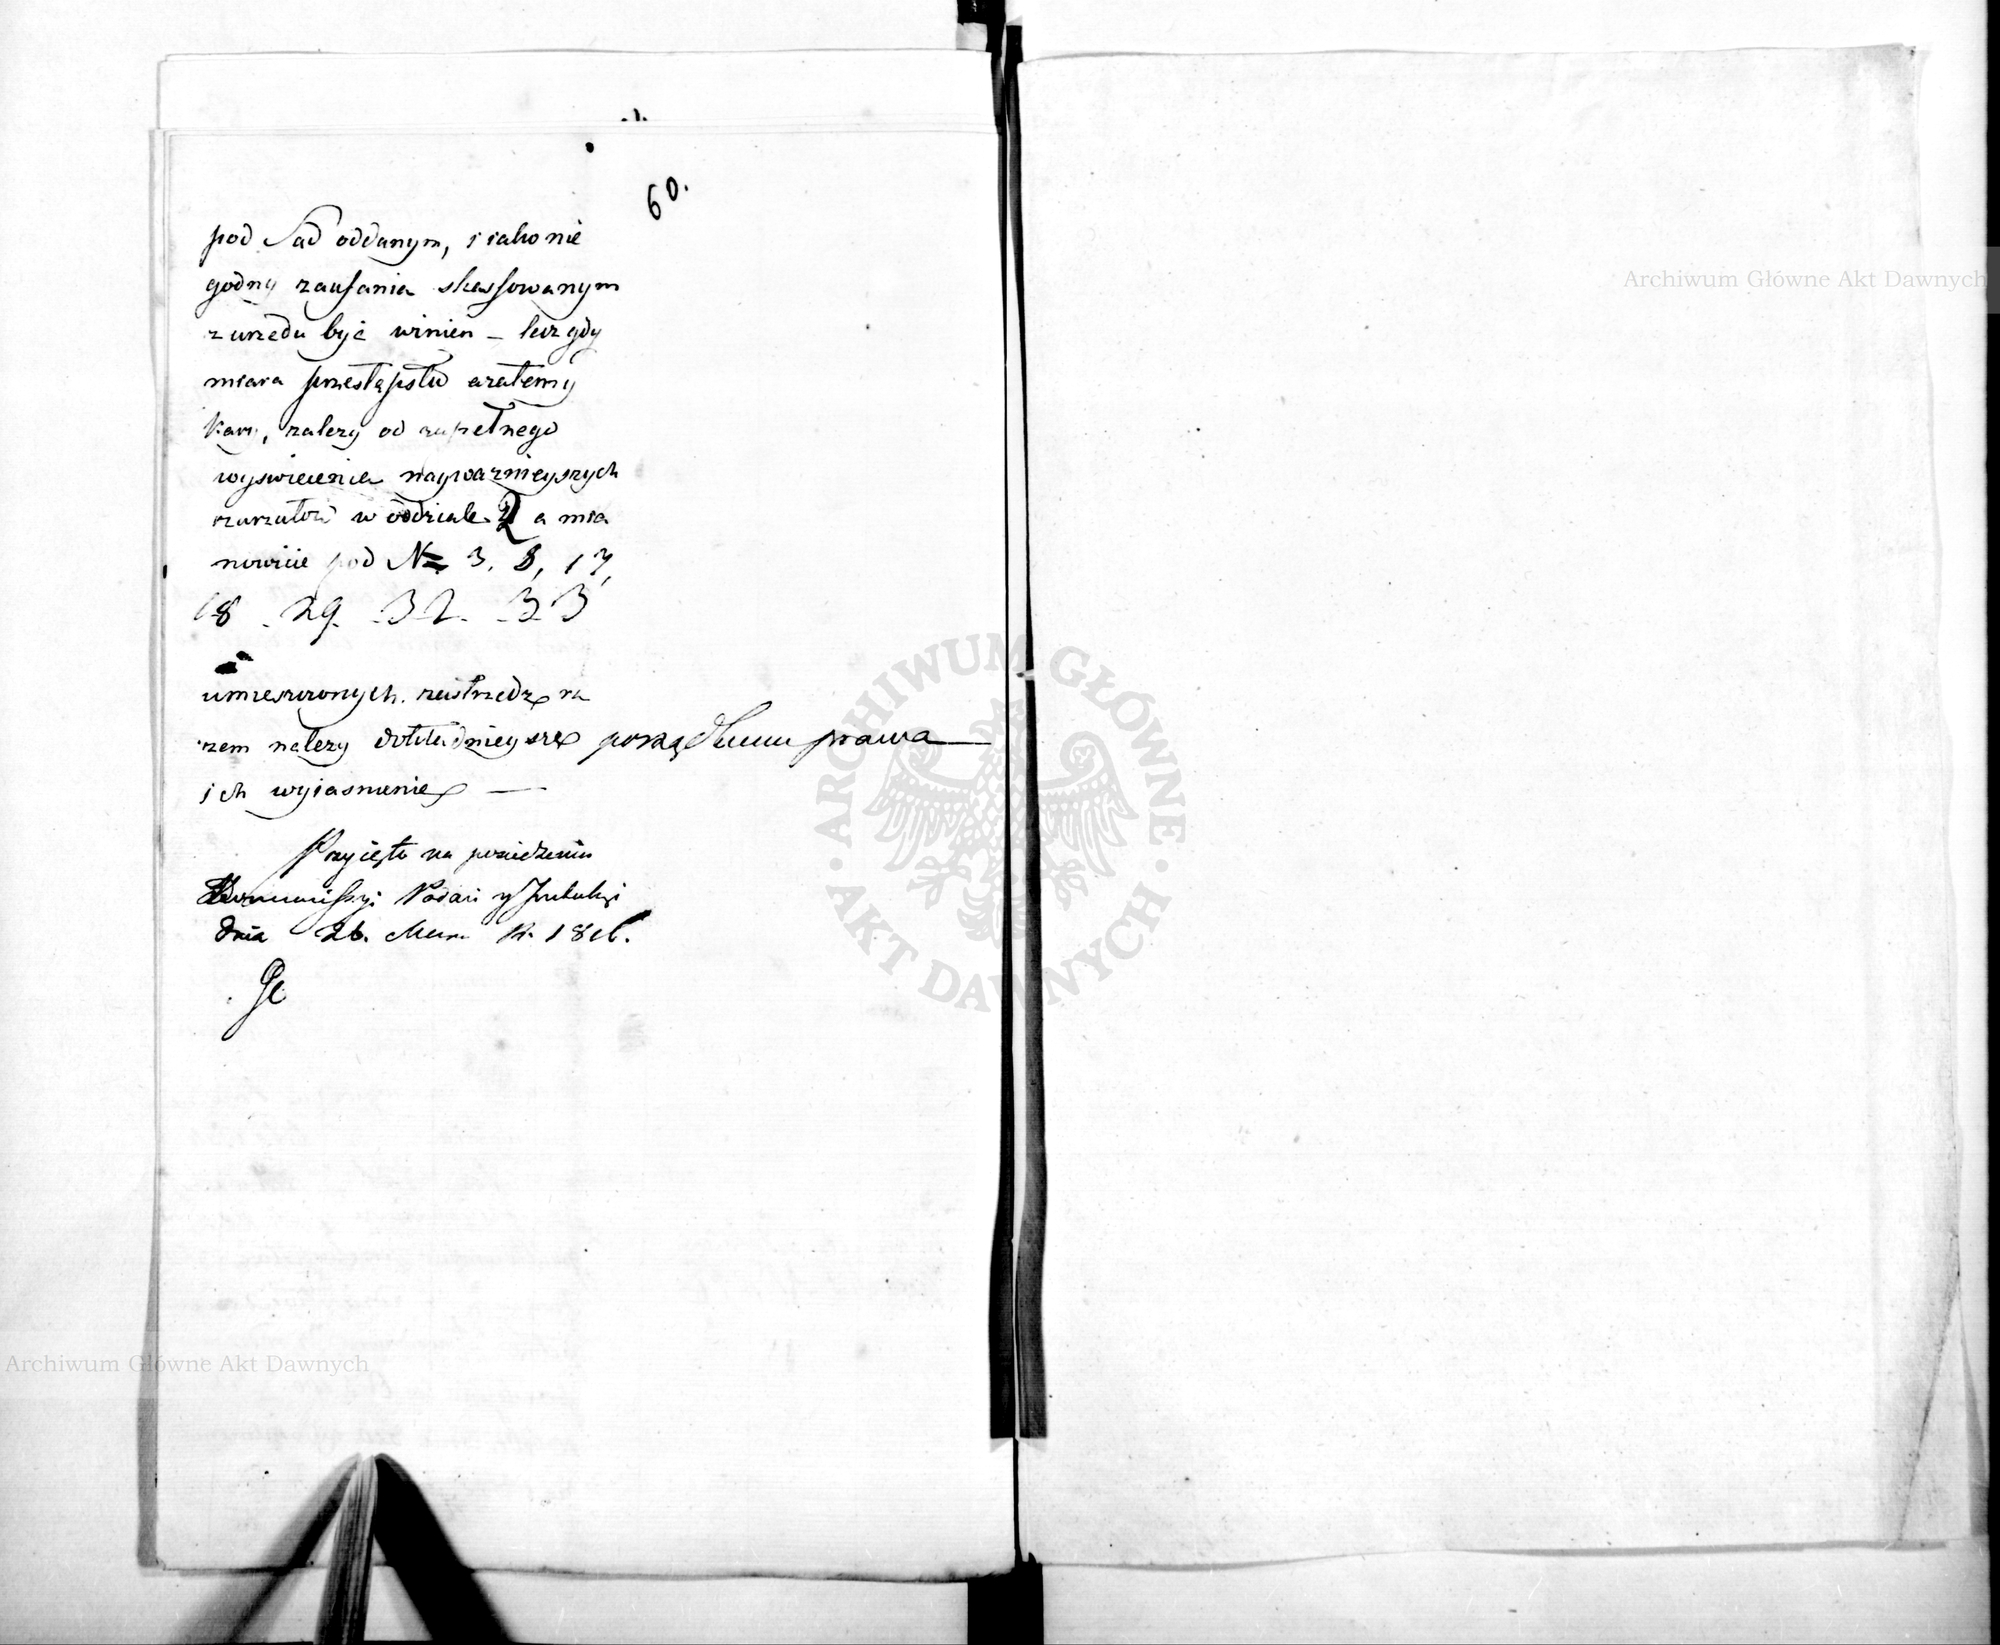 60.
pod Sad oddanym, i iako nie
godny zaufania skassowanym
z urzedu być winien – lecz gdy
miara przestąpstw a zatemy
kary, zalezy od zupełnego
wyswiecenia naywaznieyszych
zarzutow w oddziale 2 a mia
nowicie pod No 3. 8, 17,
18 - 29. - 32. - 33
umieszczonych. zastrzedz ra
zem nalezy dokładnieysze porządkiem prawa
ich wyiasnienie —
Przyięto na posiedzeniu
Kommissyi Podań y Instrukcyi
dnia 26. R. 1816.
Archiwum Główne Akt Dawnych
Archiwum Główne Akt Dawnych
ARCHIWUM GŁÓWNE · AKT DAWNYCH ·